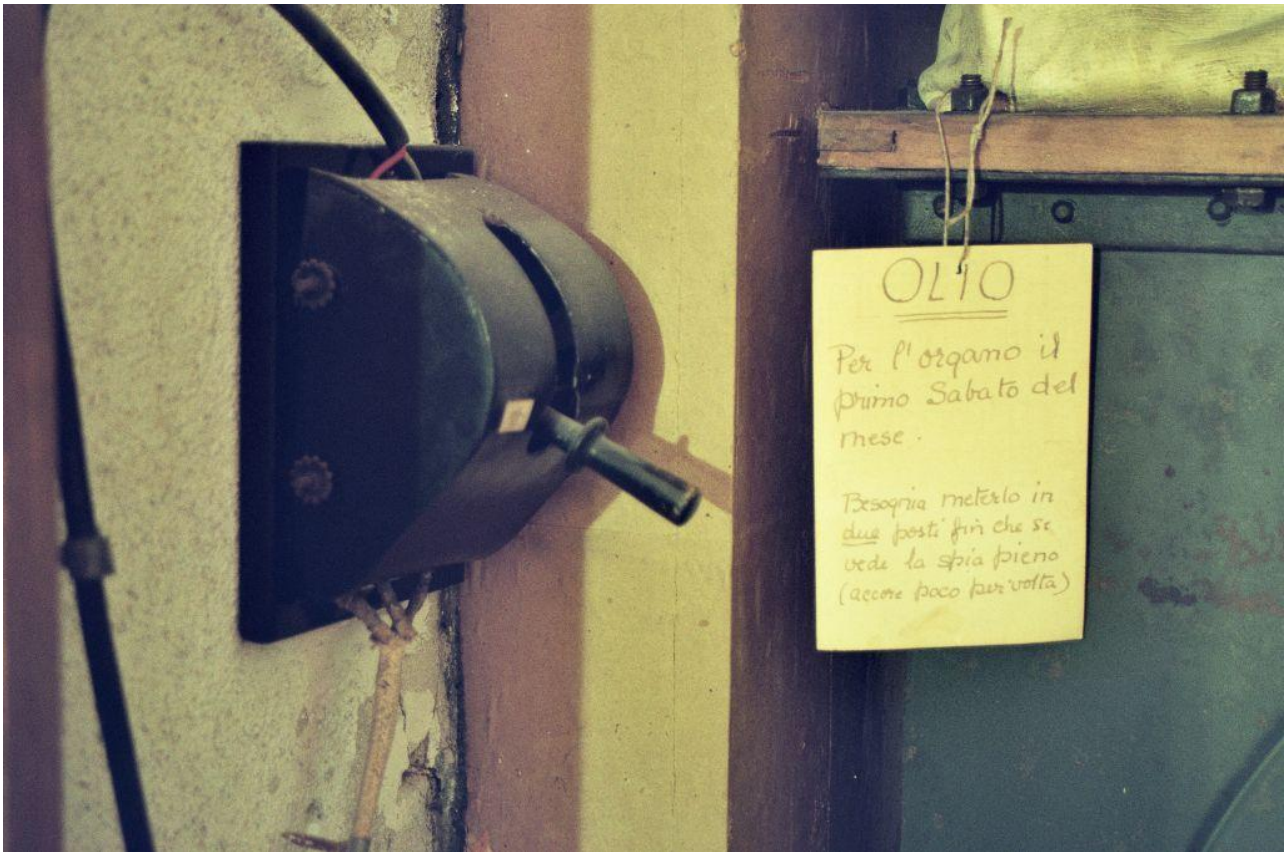 OLIO
Per l'organo il
primo Sabato del
mese.
Besognia meterlo in
due posti fin che si
vede la spia pieno
(accore poco per volta)